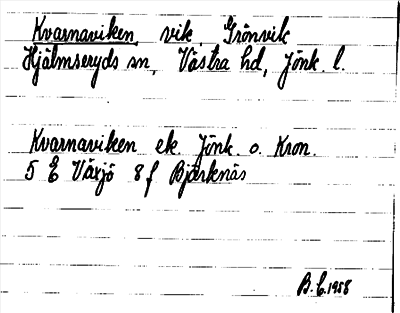 Kvarnaviken, vik, Grönvik
Hjälmseryds sn, Västra hd, Jönk. l.
Kvarnaviken ek. Jönk. o. Kron.
5 E Växjö 8 f Bjärknäs
B. E. 1958